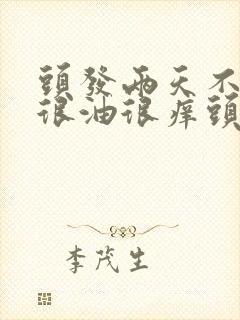 頭發兩天不
很油很癢頭
李茂生